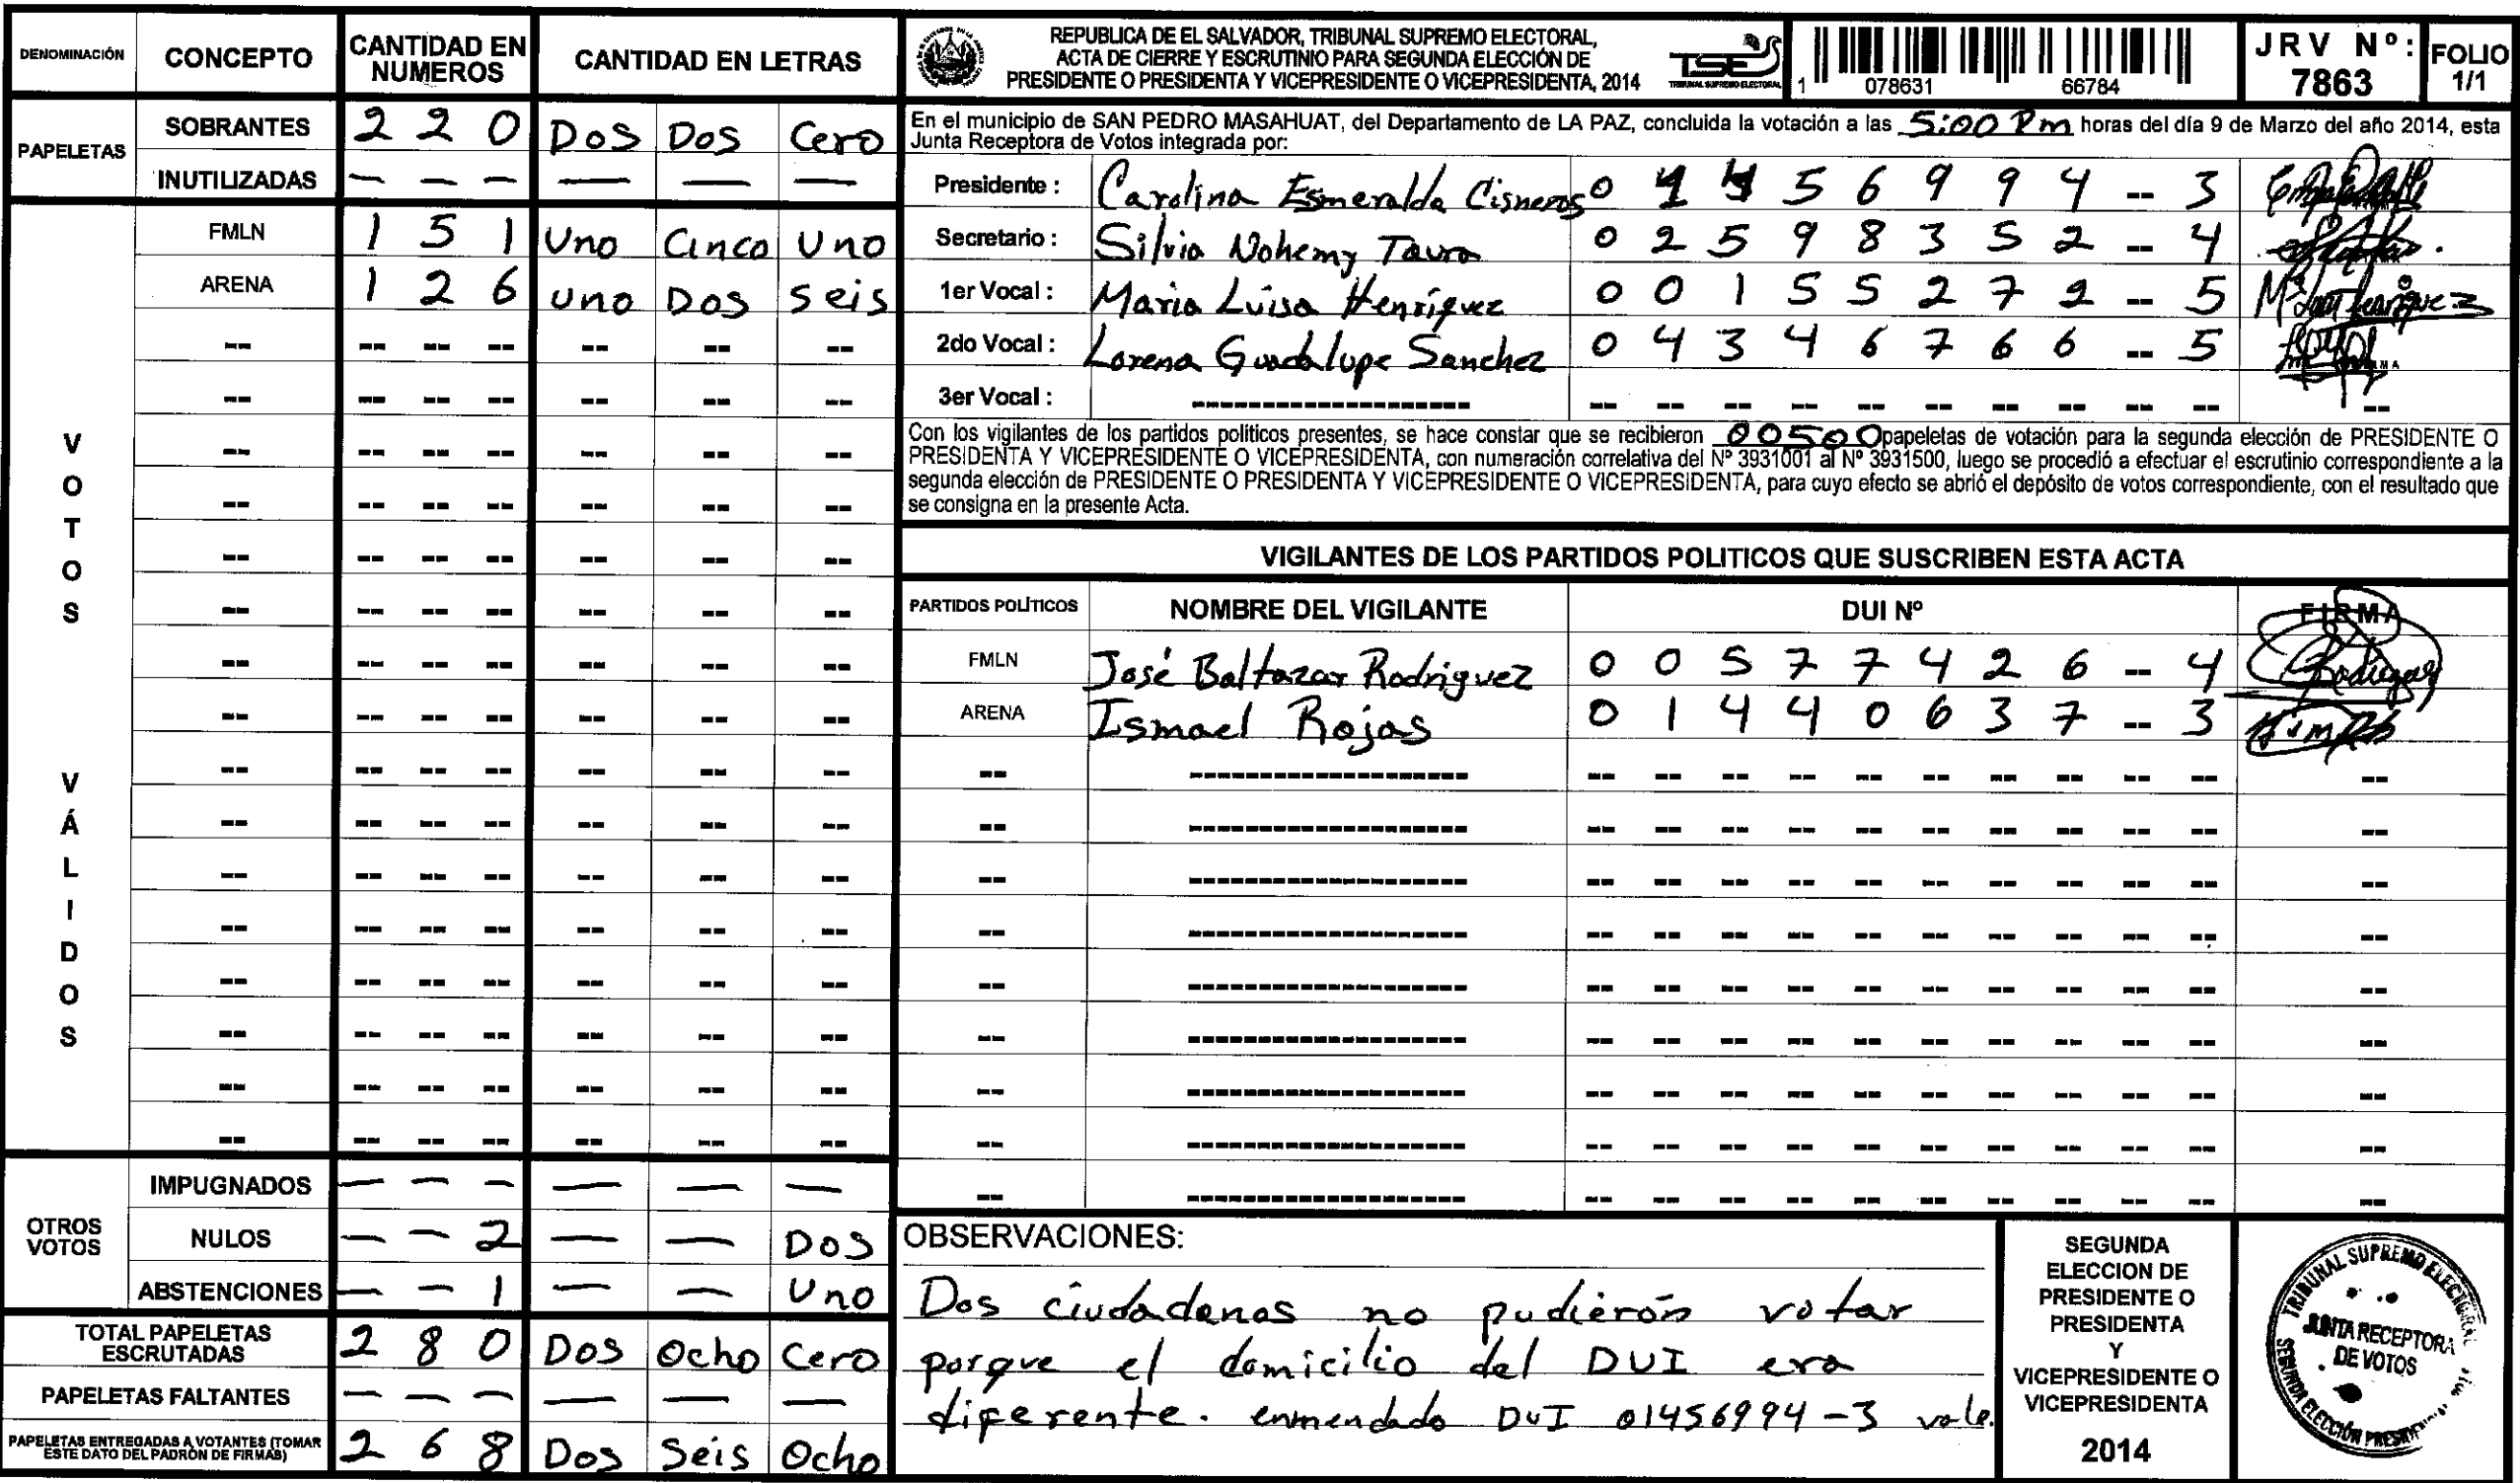 DENOMINACIÓN CONCEPTO CANTIDAD EN NUMEROS CANTIDAD EN LETRAS
PAPELETAS
SOBRANTES 2 2 0 Dos Dos Cero
INUTILIZADAS — — — — — —
VOTOS VÁLIDOS
FMLN 1 5 1 Uno Cinco Uno
ARENA 1 2 6 Uno Dos Seis
OTROS VOTOS
IMPUGNADOS — — — — — —
NULOS — — 2 — — Dos
ABSTENCIONES — — 1 — — Uno
TOTAL PAPELETAS ESCRUTADAS 2 8 0 Dos Ocho Cero
PAPELETAS FALTANTES — — — — — —
PAPELETAS ENTREGADAS A VOTANTES (TOMAR ESTE DATO DEL PADRÓN DE FIRMAS) 2 6 8 Dos Seis Ocho
REPUBLICA DE EL SALVADOR, TRIBUNAL SUPREMO ELECTORAL,
ACTA DE CIERRE Y ESCRUTINIO PARA SEGUNDA ELECCIÓN DE
PRESIDENTE O PRESIDENTA Y VICEPRESIDENTE O VICEPRESIDENTA, 2014
TSE
TRIBUNAL SUPREMO ELECTORAL
1 078631 66784
JRV Nº: 7863
FOLIO 1/1
En el municipio de SAN PEDRO MASAHUAT, del Departamento de LA PAZ, concluida la votación a las 5:00 Pm horas del día 9 de Marzo del año 2014, esta
Junta Receptora de Votos integrada por:
Presidente : Carolina Esmeralda Cisneros 0 1 4 5 6 9 9 4 -- 3
Secretario : Silvia Nohemy Taura 0 2 5 9 8 3 5 2 -- 4
1er Vocal : Maria Luisa Henriquez 0 0 1 5 5 2 7 2 -- 5
2do Vocal : Lorena Guadalupe Sanchez 0 4 3 4 6 7 6 6 -- 5
3er Vocal :
Con los vigilantes de los partidos politicos presentes, se hace constar que se recibieron 00500 papeletas de votación para la segunda elección de PRESIDENTE O
PRESIDENTA Y VICEPRESIDENTE O VICEPRESIDENTA, con numeración correlativa del Nº 3931001 al Nº 3931500, luego se procedió a efectuar el escrutinio correspondiente a la
segunda elección de PRESIDENTE O PRESIDENTA Y VICEPRESIDENTE O VICEPRESIDENTA, para cuyo efecto se abrió el depósito de votos correspondiente, con el resultado que
se consigna en la presente Acta.
VIGILANTES DE LOS PARTIDOS POLITICOS QUE SUSCRIBEN ESTA ACTA
PARTIDOS POLÍTICOS NOMBRE DEL VIGILANTE DUI Nº FIRMA
FMLN José Baltazar Rodriguez 0 0 5 7 7 4 2 6 -- 4
ARENA Ismael Rojas 0 1 4 4 0 6 3 7 -- 3
OBSERVACIONES:
Dos ciudadanos no pudierón votar
porque el domicilio del DUI era
diferente. enmendado DUI 01456994-3 vale.
SEGUNDA
ELECCION DE
PRESIDENTE O
PRESIDENTA
Y
VICEPRESIDENTE O
VICEPRESIDENTA
2014
TRIBUNAL SUPREMO ELECTORAL
JUNTA RECEPTORA
DE VOTOS
SEGUNDA ELECCIÓN